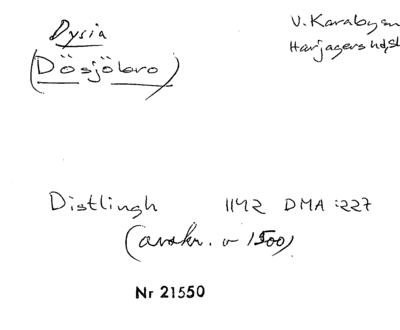 Dysia
(Dösjöbro)
V. Karaby sn
Harjagers hd, Sk
Distlingh 1142 DMA :227
(avskr. v 1500)
Nr 21550